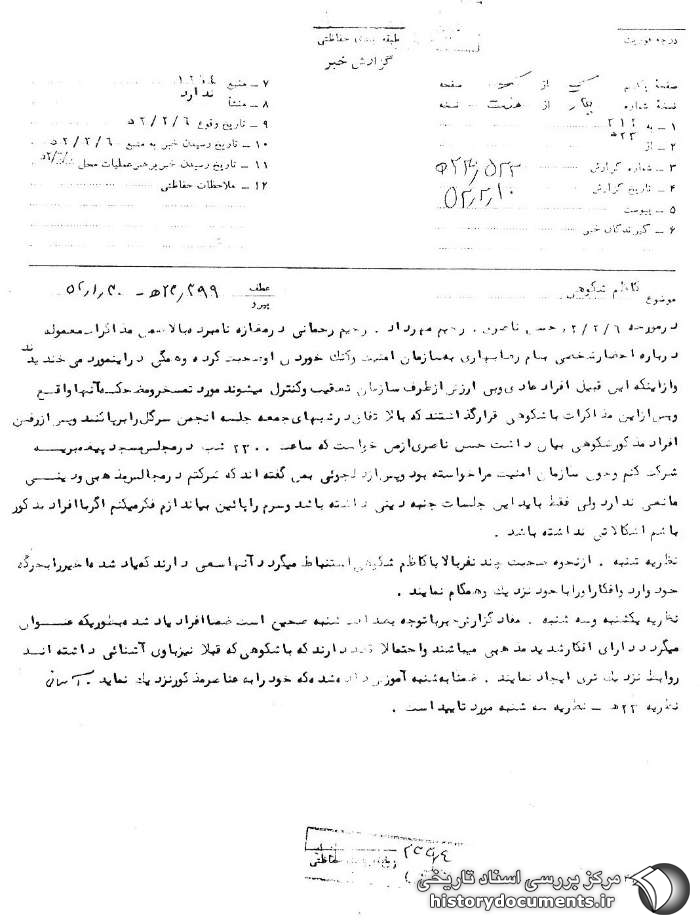 درجه فوریت
طبقه بندی حفاظتی
گزارش خبر
صفحه یکم از صفحه
نسخه شماره چهار از هفت نسخه
۱ – به ۳۱۲
۲ – از ۲۳ه
۳ – شماره گزارش
۴ – تاریخ گزارش ۵۲٫۲٫۱۰
۵ – پیوست
۶ – گیرندگان خبر
۷ – منبع
۸ – منشأ ندارد
۹ – تاریخ وقوع ۵۲/۲/۶
۱۰ – تاریخ رسیدن خبر به منبع ۵۲/۲/۶
۱۱ – تاریخ رسیدن خبر برهبر عملیات محل
۱۲ – ملاحظات حفاظتی
موضوع کاظم شکوهی
عطف
پیرو
۵۲٫۱٫۳۰
در مورخه ۲/۲/۶ حسن ناصری، رحیم مهرداد، رحیم رحمانی در مغازه نامبرده بالا ضمن مذاکرات معموله
درباره احضار شخصی بنام به سازمان امنیت و کتک خوردن او صحبت کرده و همگی در اینمورد می خندیدند
و از اینکه این قبیل افراد عادی و بی ارزش از طرف سازمان تعقیب و کنترل میشوند مورد تمسخر و مضحکه آنها واقع
و پس از این مذاکرات با شکوهی قرار گذاشتند که بالاتفاق در شبهای جمعه جلسه انجمن سرگل را برپا کنند و پس از رفتن
افراد مذکور شکوهی بیان داشت حسن ناصری از من خواست که ساعت ۲۳۰۰ شب در مجلس مسجد
شرکت کنم و چون سازمان امنیت مرا خواسته بود و پس از دلجوئی بمن گفته اند که شرکتم در مجالس مذهبی و دینی
مانعی ندارد ولی فقط باید این جلسات جنبه دینی داشته باشد و سرم را پائین بیاندازم فکر میکنم اگر با افراد مذکور
باشم اشکالاتی نداشته باشد .
نظریه شنبه . از نحوه صحبت چند نفر بالا با کاظم شکوهی استنباط میگردد آنها سعی دارند که یاد شده اخیر را بجرگه
خود وارد و افکار او را با خود نزدیک و همگام نمایند .
نظریه یکشنبه و سه شنبه . مفاد گزارش خبر با توجه بصداقت شنبه صحیح است ضمنا افراد یاد شده بطوریکه عنوان
میگردد دارای افکار شدید مذهبی میباشند و احتمالا قصد دارند که با شکوهی که قبلا نیز با وی آشنائی داشته اند
روابط نزدیک تری ایجاد نمایند . ضمنا به شنبه آموزش داده شده که خود را به عناصر مذکور نزدیک نماید .
نظریه ۲۳ه – نظریه سه شنبه مورد تایید است .
طبقه بندی حفاظتی
مرکز بررسی اسناد تاریخی
historydocuments.ir